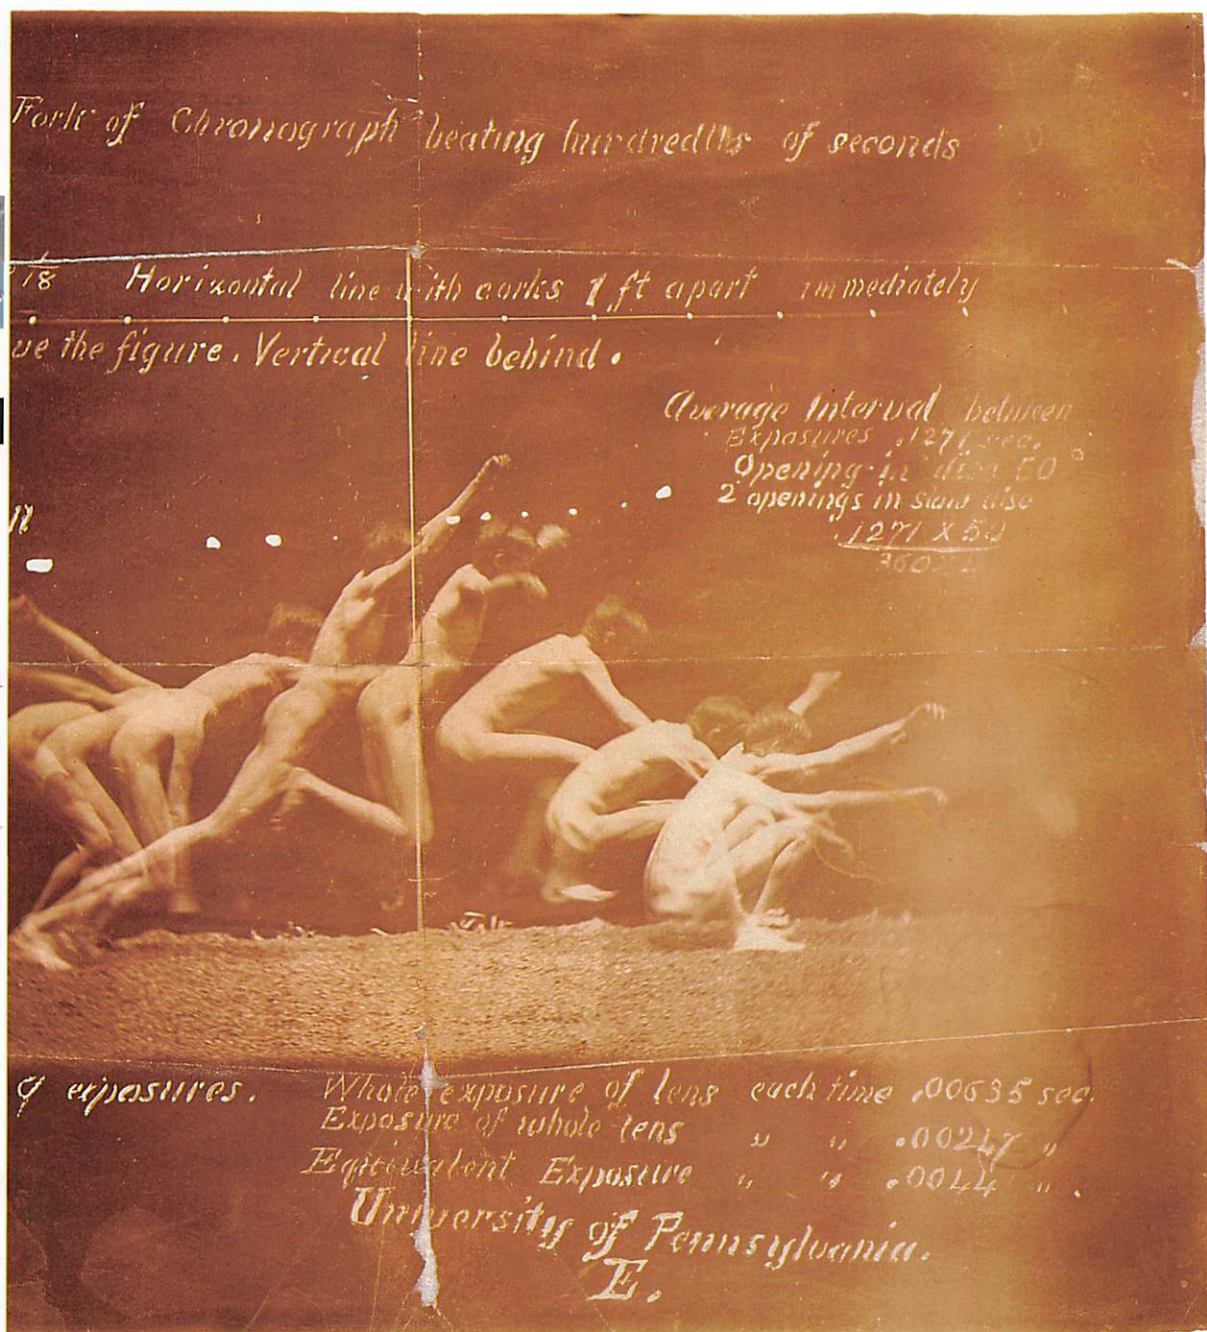 Fork of Chronograph beating hundredths of seconds
1/18 Horizontal line with corks 1 ft apart immediately
ve the figure. Vertical line behind.
Average Interval between
Exposures .1271 sec.
Opening in disc 50°
2 openings in slow disc
.1271 X 50
360
n
9 exposures. Whole exposure of lens each time .00635 sec.
Exposure of whole lens " " .00247 "
Equivalent Exposure " " .0044 " .
University of Pennsylvania.
E.